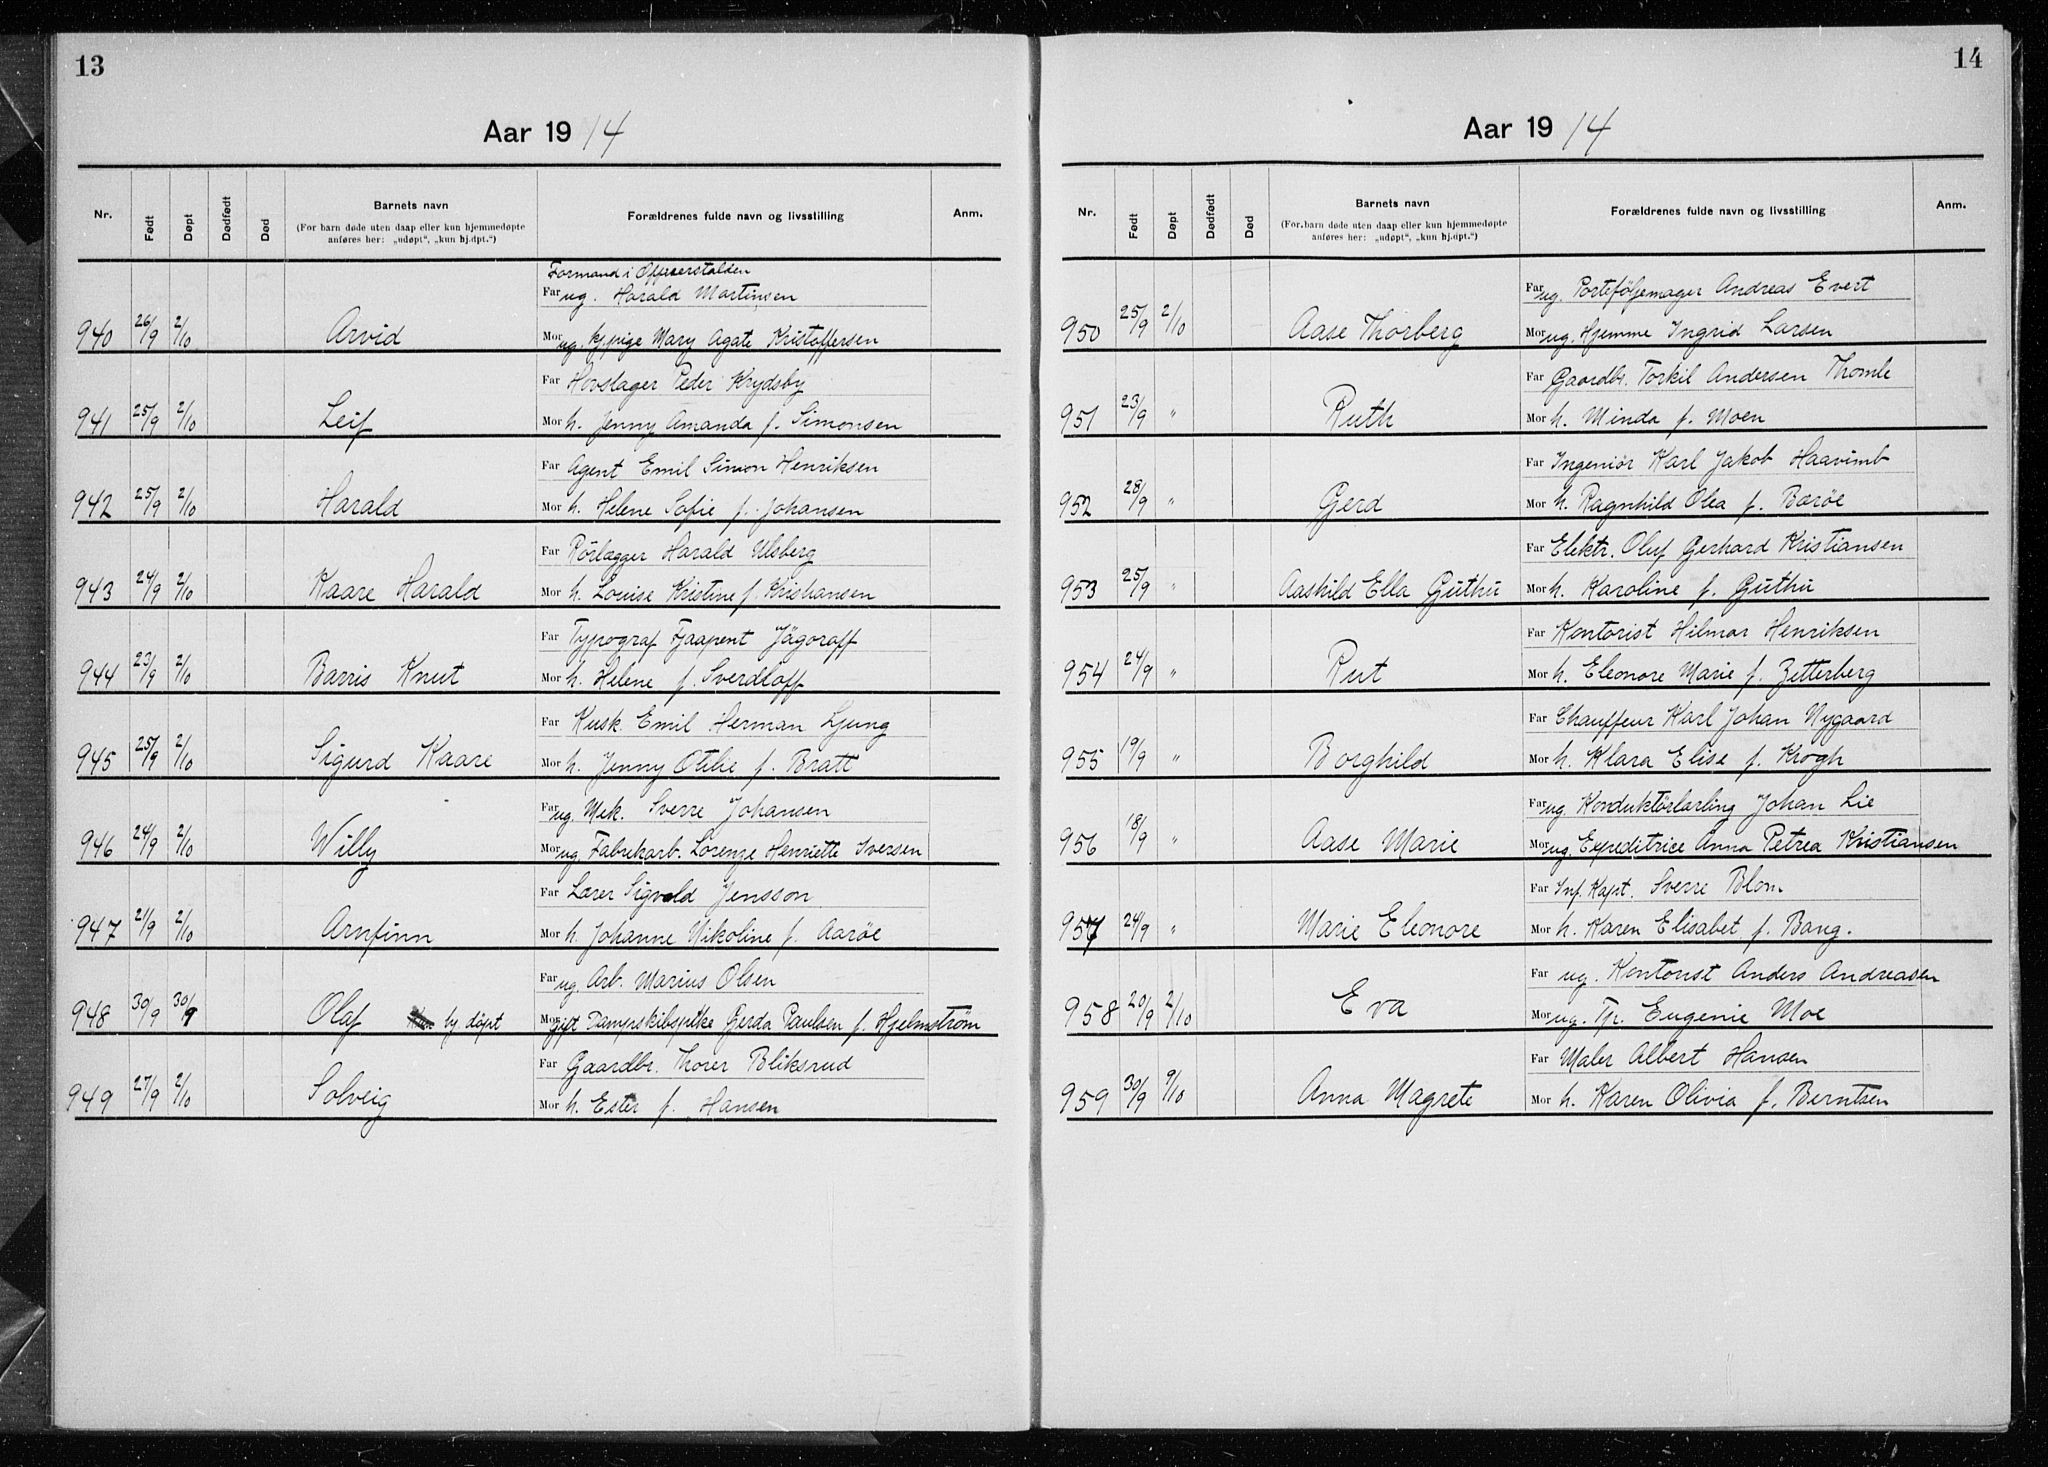 13
Aar 1914
Nr. Født Døpt Dødfødt Død Barnets navn Forældrenes fulde navn og livsstilling Anm.
(For barn døde uten daap eller kun hjemmedøpte
anføres her: „udøpt“, „kun hj.døpt.“)
Formand i Officerstalden
Far ug. Harald Martinsen
940 26/9 2/10 Arvid Mor ug. Kj.pige Mary Agate Kristoffersen
Far Hovslager Peder Krydsby
941 25/9 2/10 Leif Mor h. Jenny Amanda f. Simonsen
Far Agent Emil Simon Henriksen
942 25/9 2/10 Harald Mor h. Helene Sofie f. Johansen
Far Rörlægger Harald Ulsberg
943 24/9 2/10 Kaare Harald Mor h. Louise Kristine f. Kristiansen
Far Typograf Fjaapent Jägoroff
944 23/9 2/10 Barris Knut Mor h. Helene f. Sverdloff
Far Kusk Emil Herman Ljung
945 25/9 2/10 Sigurd Kaare Mor h. Jenny Otilie f. Bratt
Far ug. Mek. Sverre Johansen
946 24/9 2/10 Willy Mor ug. Fabrikarb. Lorenze Henriette Iversen
Far Lærer Sigvald Jensson
947 21/9 2/10 Arnfinn Mor h. Johanne Nikoline f. Aarøe
Far ug. Arb. Marius Olsen
948 30/9 30/9 Olaf hj døpt Mor gift Dampskibspike Gerda Paulsen f. Hjelmstrøm
Far Gaardbr. Thorer Bliksrud
949 27/9 2/10 Solveig Mor h. Ester f. Hansen
14
Aar 1914
Nr. Født Døpt Dødfødt Død Barnets navn Forældrenes fulde navn og livsstilling Anm.
(For barn døde uten daap eller kun hjemmedøpte
anføres her: „udøpt“, „kun hj.døpt.“)
Far ug. Porteföljemager Andreas Evert
950 25/9 2/10 Aase Thorberg Mor ug. Hjemme Ingrid Larsen
Far Gaardbr. Torkil Andersen Thomle
951 23/9 " Ruth Mor h. Minda f. Moen
Far Ingeniör Karl Jakob Haavimb
952 28/9 " Gerd Mor h. Ragnhild Olea f. Barøe
Far Elektr. Oluf Gerhard Kristiansen
953 25/9 " Aashild Ella Guthu Mor h. Karoline f. Guthu
Far Kontorist Hilmar Henriksen
954 24/9 " Rut Mor h. Eleonore Marie f. Zetterberg
Far Chauffeur Karl Johan Nygaard
955 19/9 " Borghild Mor h. Klara Elise f. Krogh
Far ug. Konduktörlærling Johan Lie
956 18/9 " Aase Marie Mor ug. Expeditrice Anna Petrea Kristiansen
Far Inf. Kapt. Sverre Blom
957 24/9 " Marie Eleonore Mor h. Karen Elisabet f. Bang.
Far ug. Kontorist Anders Andreasen
958 20/9 2/10 Eva Mor ug. Tp. Eugenie Moe
Far Maler Albert Hansen
959 30/9 9/10 Anna Magrete Mor h. Karen Olivia f. Berntsen